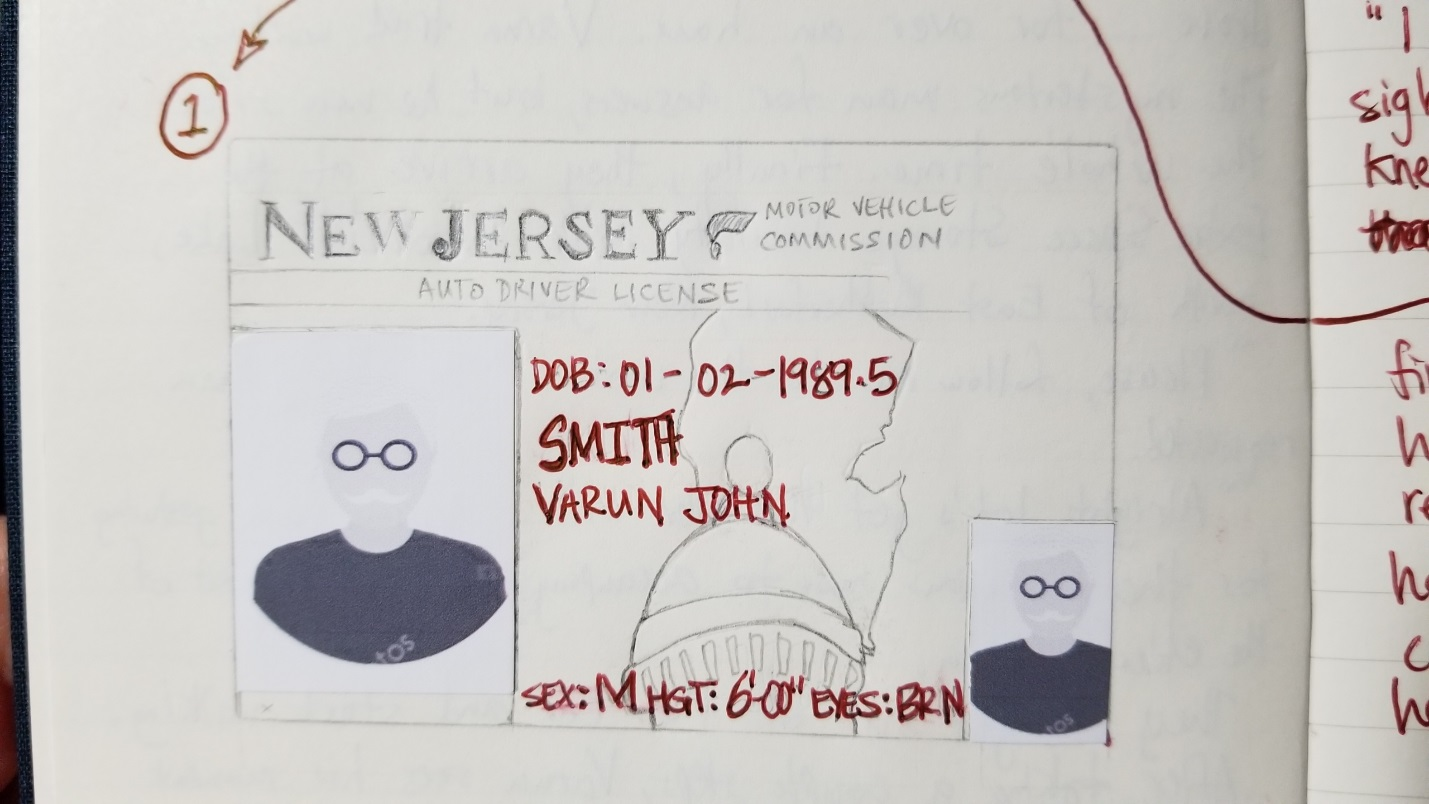 1
NEW JERSEY MOTOR VEHICLE
COMMISSION
AUTO DRIVER LICENSE
DOB: 01-02-1989.5
SMITH
VARUN JOHN
SEX: M HGT: 6'-00" EYES: BRN
tos
tos
"I
sigh
kne
fi
h
re
h
c
h